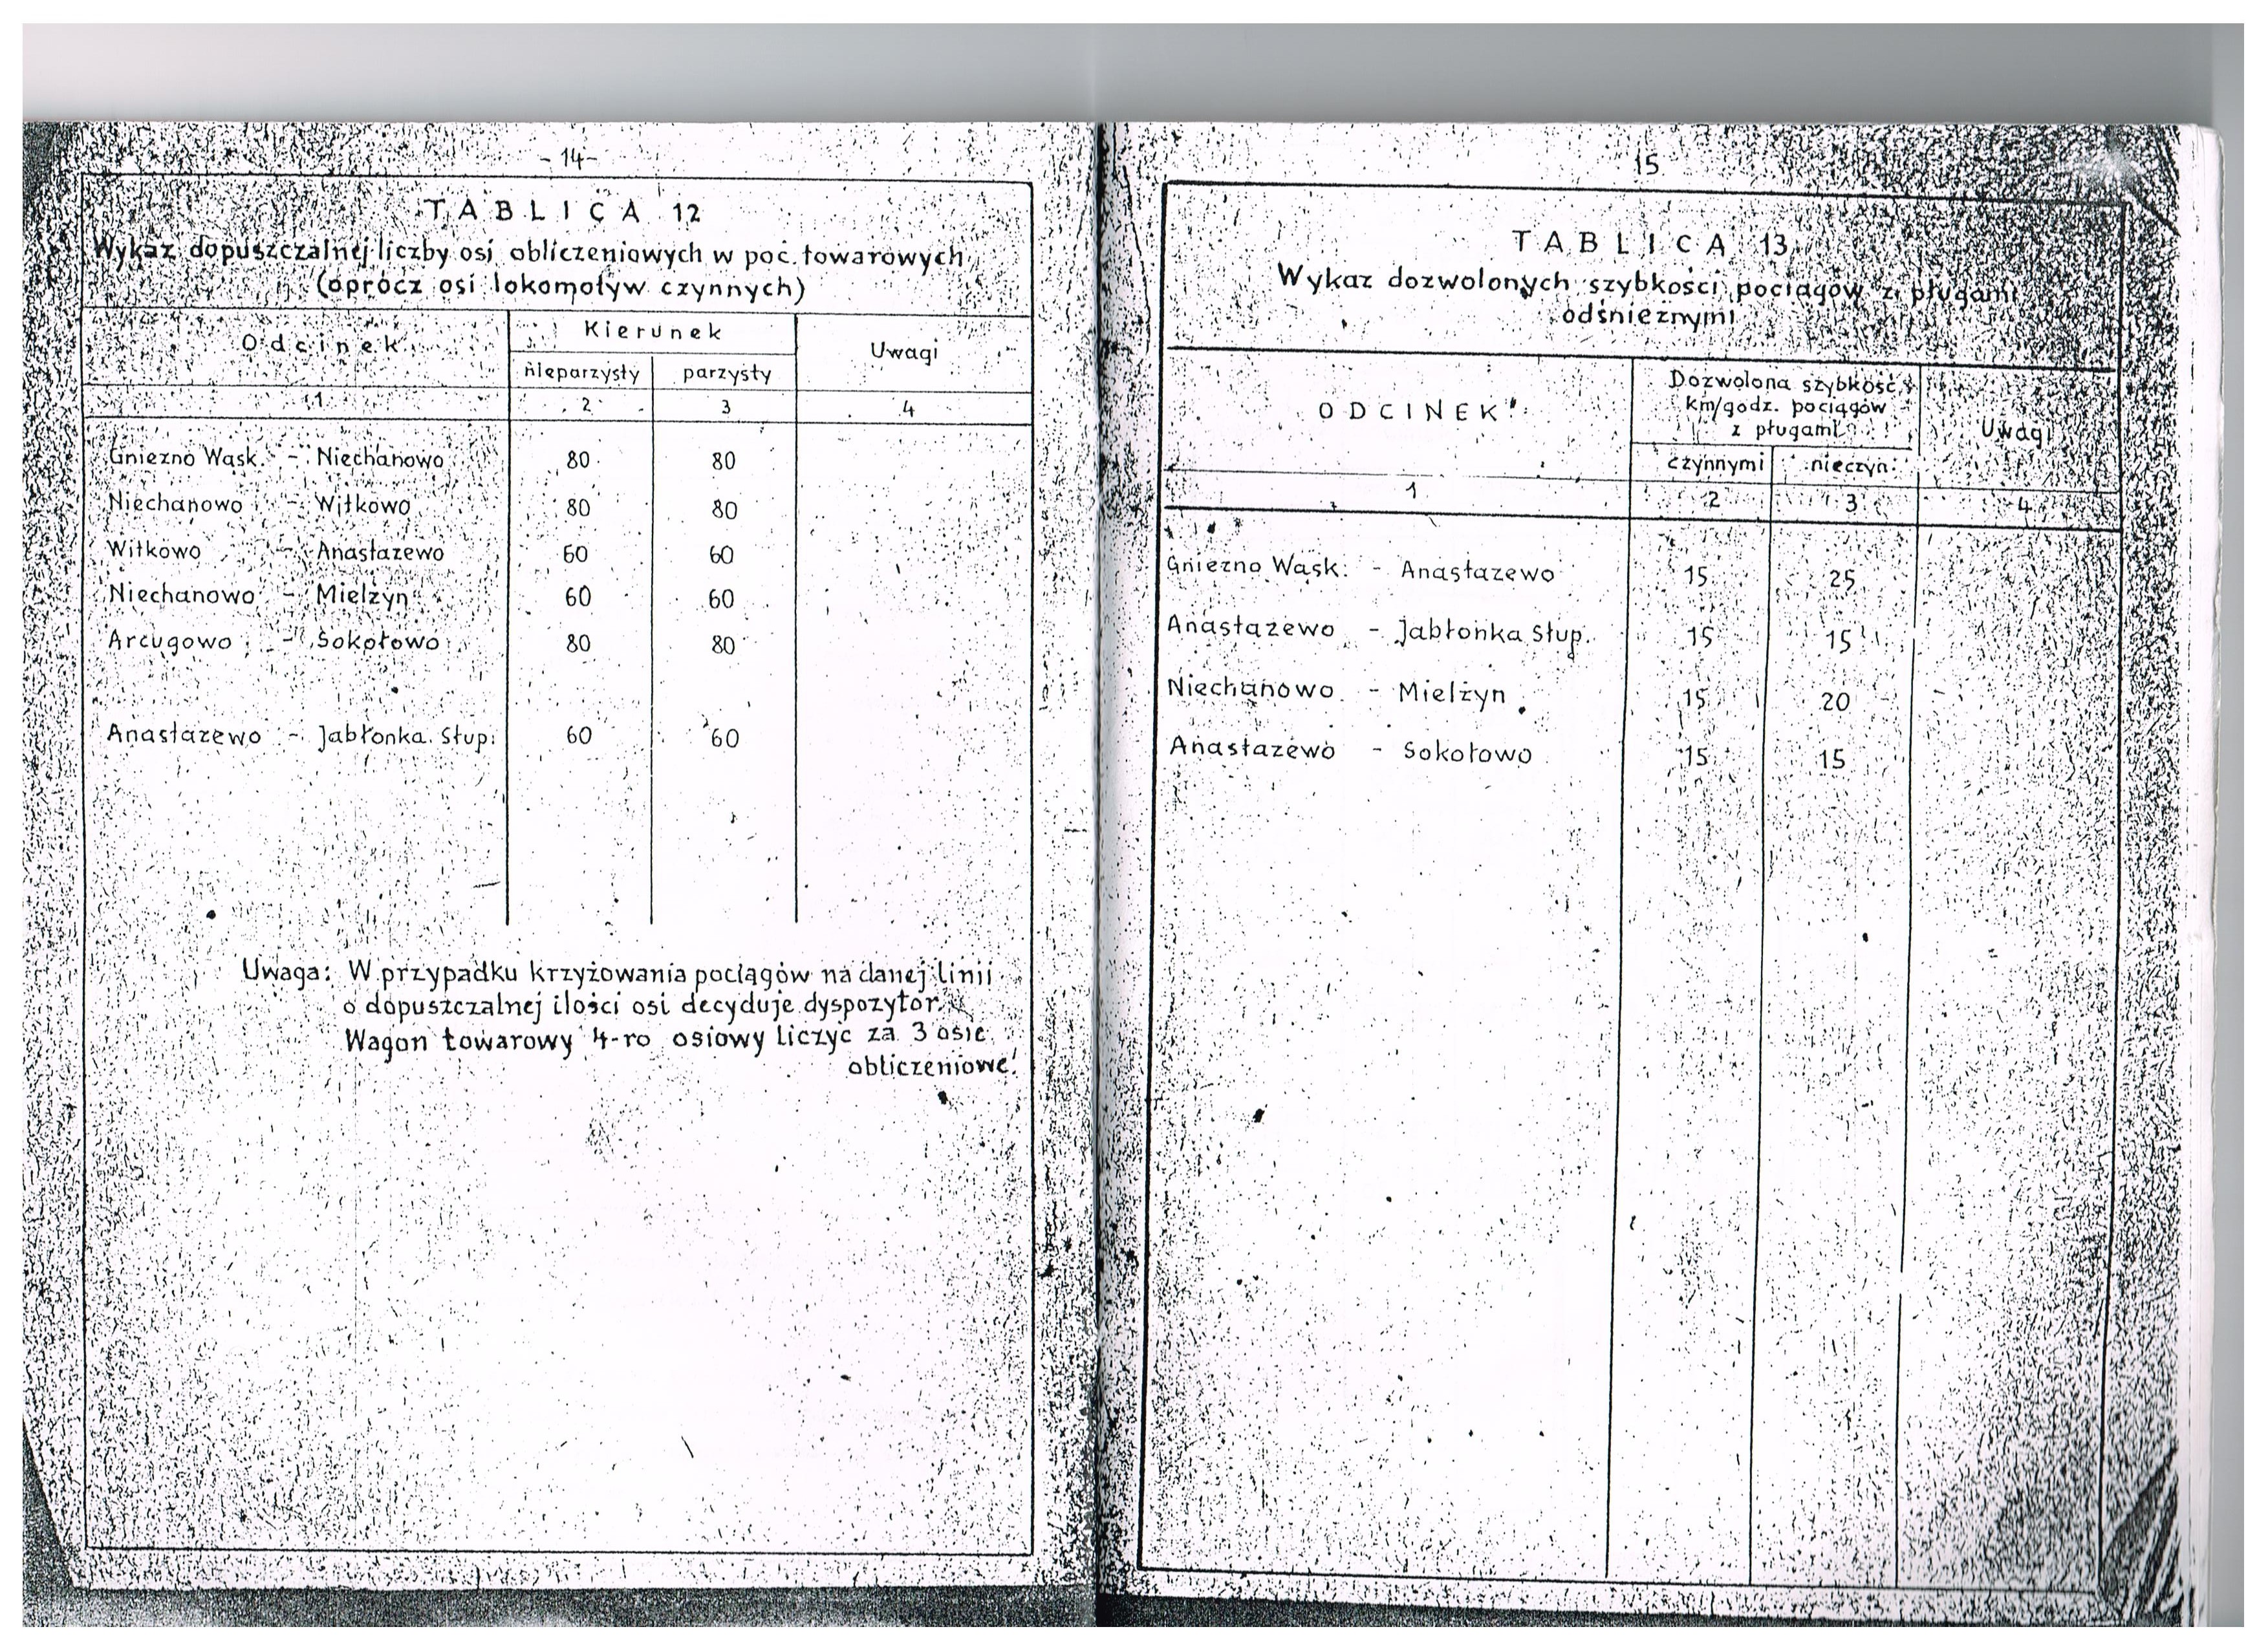 - 14 -
TABLICA 12
Wykaz dopuszczalnej liczby osi obliczeniowych w poc. towarowych
(oprócz osi lokomotyw czynnych)
Odcinek Kierunek Uwagi
nieparzysty parzysty
1 2 3 4
Gniezno Wąsk. - Niechanowo 80 80
Niechanowo - Witkowo 80 80
Witkowo - Anastazewo 60 60
Niechanowo - Mielżyn 60 60
Arcugowo - Sokołowo 80 80
Anastazewo - Jabłonka Słup. 60 60
Uwaga: W przypadku krzyżowania pociągów na danej linii
o dopuszczalnej ilości osi decyduje dyspozytor.
Wagon towarowy 4-ro osiowy liczyć za 3 osie
obliczeniowe!
15
TABLICA 13
Wykaz dozwolonych szybkości pociągów z pługami
odśnieżnymi
ODCINEK Dozwolona szybkość Uwagi
km/godz. pociągów
z pługami
czynnymi nieczyn.
1 2 3 4
Gniezno Wąsk. - Anastazewo 15 25
Anastazewo - Jabłonka Słup. 15 15
Niechanowo - Mielżyn 15 20
Anastazewo - Sokołowo 15 15